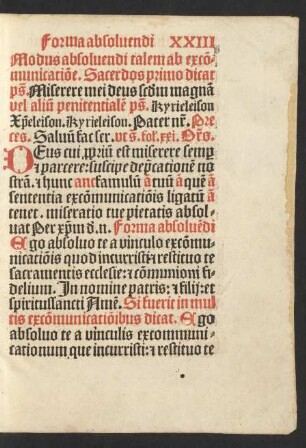 Forma absoluendi XXIII
Modus absoluendi talem ab excõ-
municatiõe. Sacerdos primo dicat
ps̃. Miserere mei deus scđm magnã
vel aliũ penitentialẽ ps̃. Kyrieleison
Xp̃eleison. Kyrieleison. Pater nr̃. Pre-
ces. Saluũ fac ser. vt s̃. fol. xxi. Or̃o.
DEus cui ꝓpriũ est miserere semꝑ
⁊ parcere: suscipe dep̃cationẽ no-
strã. ⁊ hunc anc famulũ ã tuũ ã quẽ ã
sententia excõmunicatiõis ligatũ ã
tenet. miseratio tue pietatis absol-
uat Per xp̃m d. n. Forma absoluẽdi
Ego absoluo te a vinculo excõmu-
nicatiõis quod incurristi: ⁊ restituo te
sacramentis ecclesie: ⁊ cõmunioni fi-
delium. In nomine patris: ⁊ filij: et
spiritussancti Amẽ. Si fuerit in mul
tis excõmunicatiõibus dicat. Ego
absoluo te a vinculis excommuni-
cationum que incurristi: ⁊ restituo te